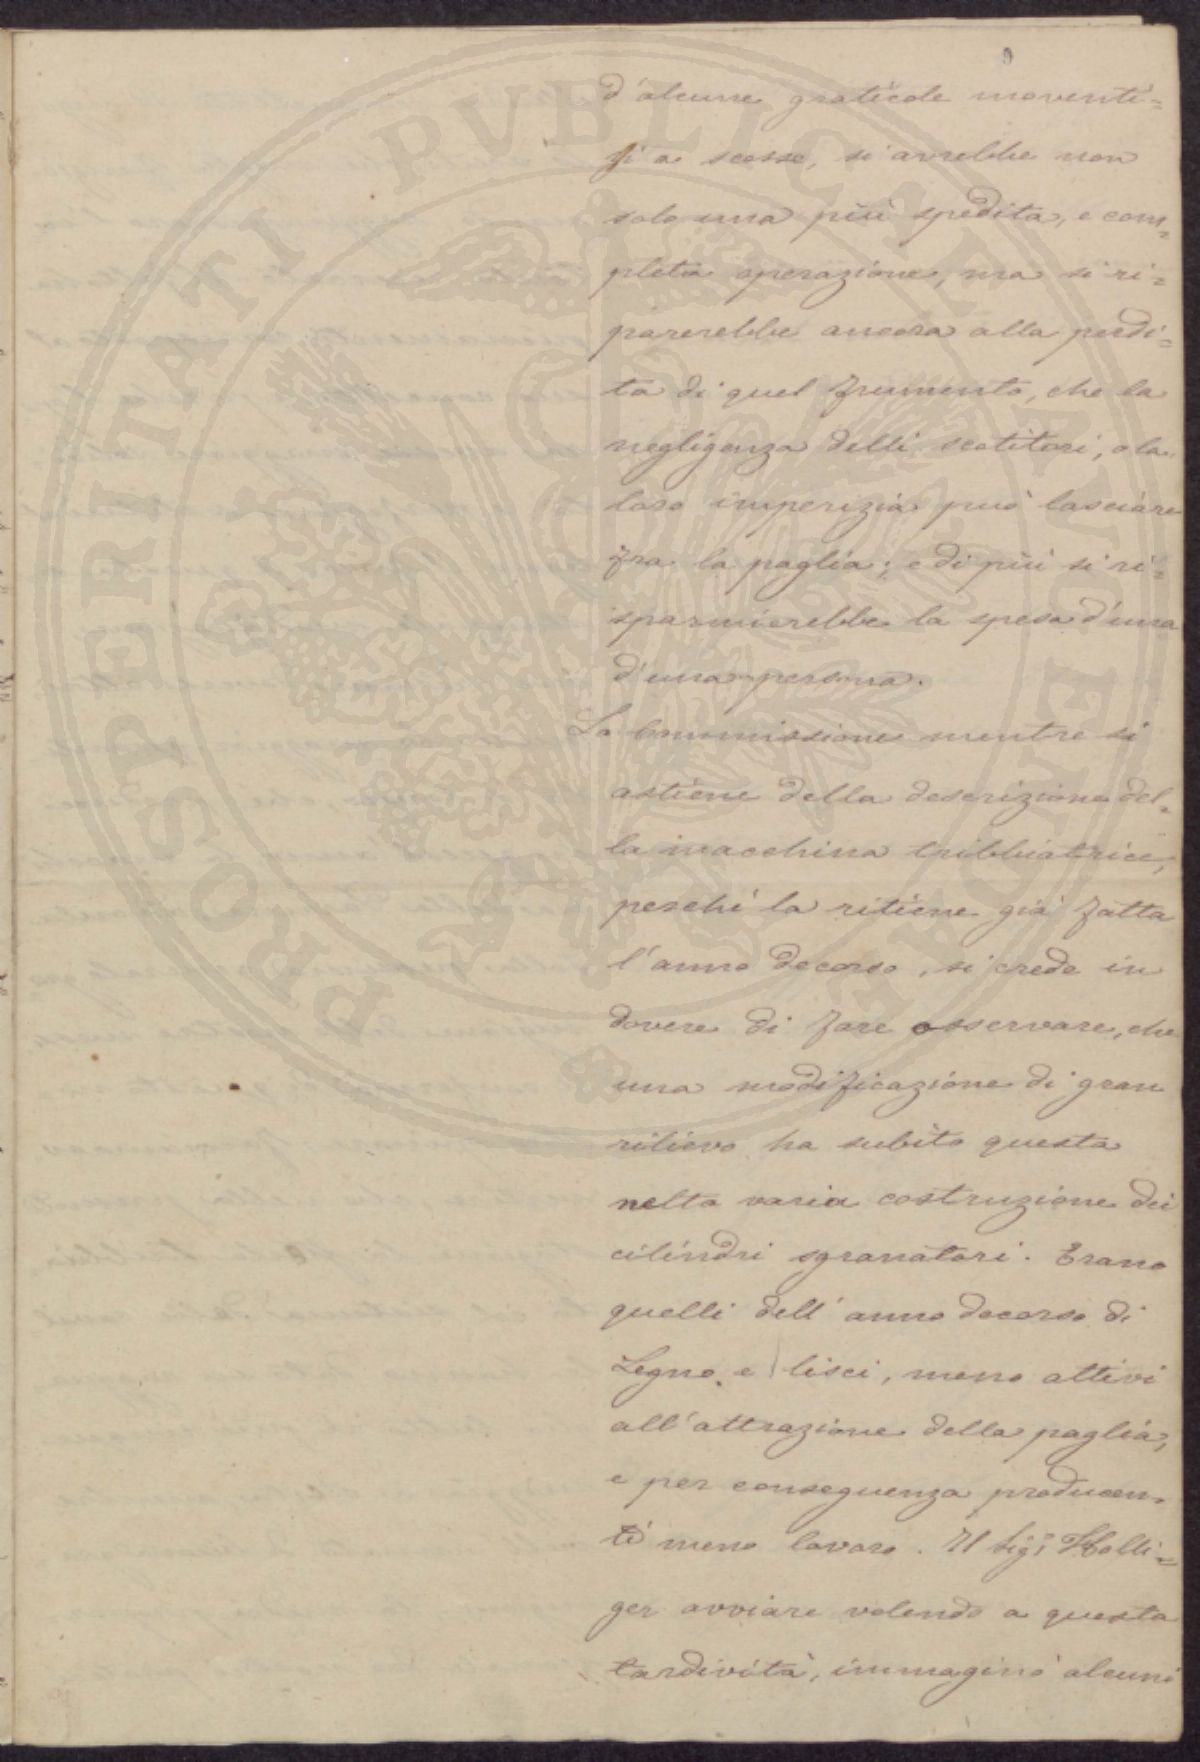 d'alcune graticole moventi=
si a scosse, si avrebbe non
solo una più spedita, e com=
pleta operazione, ma si ri=
parerebbe ancora alla perdi=
ta di quel frumento, che la
negligenza delli scotitori, o la
loro imperizia può lasciare
fra la paglia; e di più si ri=
sparmierebbe la spesa d'una
d'una persona.
La Commissione mentre si
astiene della descrizione del=
la macchina tribbiatrice,
perché la ritiene già fatta
l'anno decorso, si crede in
dovere di fare osservare, che
una modificazione di gran
rilievo ha subito questa
nella varia costruzione dei
cilindri sgranatori. Erano
quelli dell'anno decorso di
Legno e lisci, meno attivi
all'attrazione della paglia,
e per conseguenza producen=
ti meno lavoro. Il Sigr Holli=
ger ovviare volendo a questa
tardività, immaginò alcuni
PROSPERITATI PUBLICAE AUGENDAE